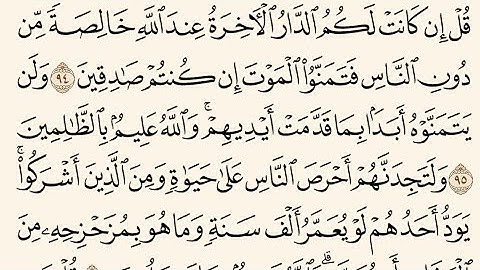 قُلْ إِن كَانَتْ لَكُمُ ٱلدَّارُ ٱلْأَخِرَةُ عِندَ ٱللَّهِ خَالِصَةً مِّن
دُونِ ٱلنَّاسِ فَتَمَنَّوُا۟ ٱلْمَوْتَ إِن كُنتُمْ صَٰدِقِينَ ٩٤ وَلَن
يَتَمَنَّوْهُ أَبَدًۢا بِمَا قَدَّمَتْ أَيْدِيهِمْ ۚ وَٱللَّهُ عَلِيمٌۢ بِٱلظَّٰلِمِينَ
٩٥ وَلَتَجِدَنَّهُمْ أَحْرَصَ ٱلنَّاسِ عَلَىٰ حَيَوٰةٍ وَمِنَ ٱلَّذِينَ أَشْرَكُوا۟ ۚ
يَوَدُّ أَحَدُهُمْ لَوْ يُعَمَّرُ أَلْفَ سَنَةٍ وَمَا هُوَ بِمُزَحْزِحِهِۦ مِنَ